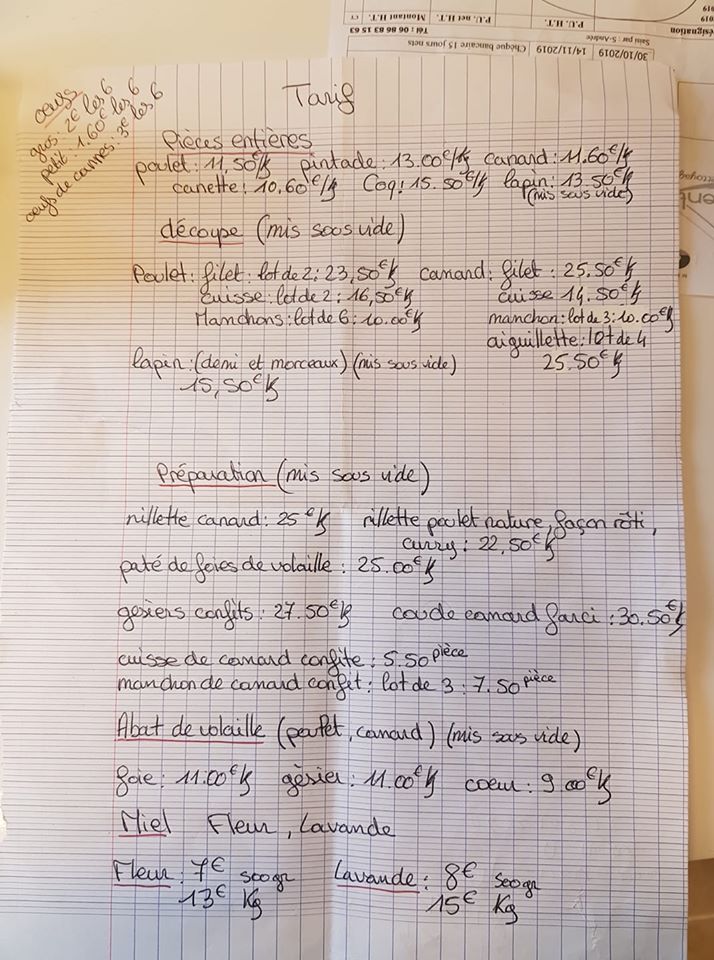 ésignation
P.U. H.T.
P.U. net H.T.
Montant H.T.
CT
2019
Tél : 06 86 83 15 63
Saisi par : S-Andrée
30/10/2019
14/11/2019
Chèque bancaire 15 jours nets
Tarif
oeufs
gros : 2€ les 6
petit : 1.60€ les 6
oeufs de cannes : 3€ les 6
Pièces entières
poulet : 11,50€/kg pintade : 13.00€/kg canard : 11.60€/kg
canette : 10,60€/kg Coq : 15.50€/kg lapin : 13.50€/kg
(mis sous vide)
découpe (mis sous vide)
Poulet : filet : lot de 2 : 23,50€ kg canard : filet : 25.50€ kg
cuisse : lot de 2 : 16,50€ kg cuisse 14.50€ kg
Manchons : lot de 6 : 10.00€ kg manchon : lot de 3 : 10.00€ kg
aiguillette : lot de 4
lapin : (demi et morceaux) (mis sous vide) 25.50€ kg
15,50€ kg
Préparation (mis sous vide)
rillette canard : 25€ kg rillette poulet nature, façon rôti,
curry : 22,50€ kg
paté de foies de volaille : 25.00€ kg
gesiers confits : 27.50€ kg cou de canard farci : 30.50€ kg
cuisse de canard confite : 5.50 pièce
manchon de canard confit : lot de 3 : 7.50 pièce
Abat de volaille (poulet, canard) (mis sous vide)
foie : 11.00€ kg gèsier : 11.00€ kg coeur : 9.00€ kg
Miel Fleur, Lavande
Fleur : 7€ 500gr Lavande : 8€ 500gr
13€ Kg 15€ Kg